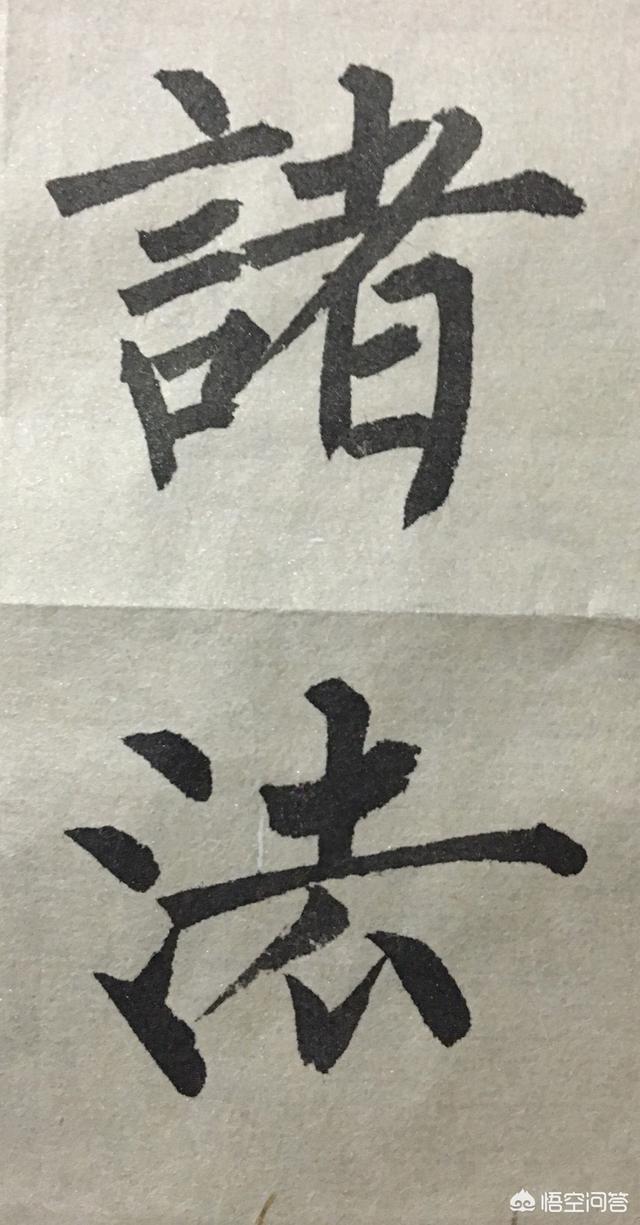 諸
法
悟空问答